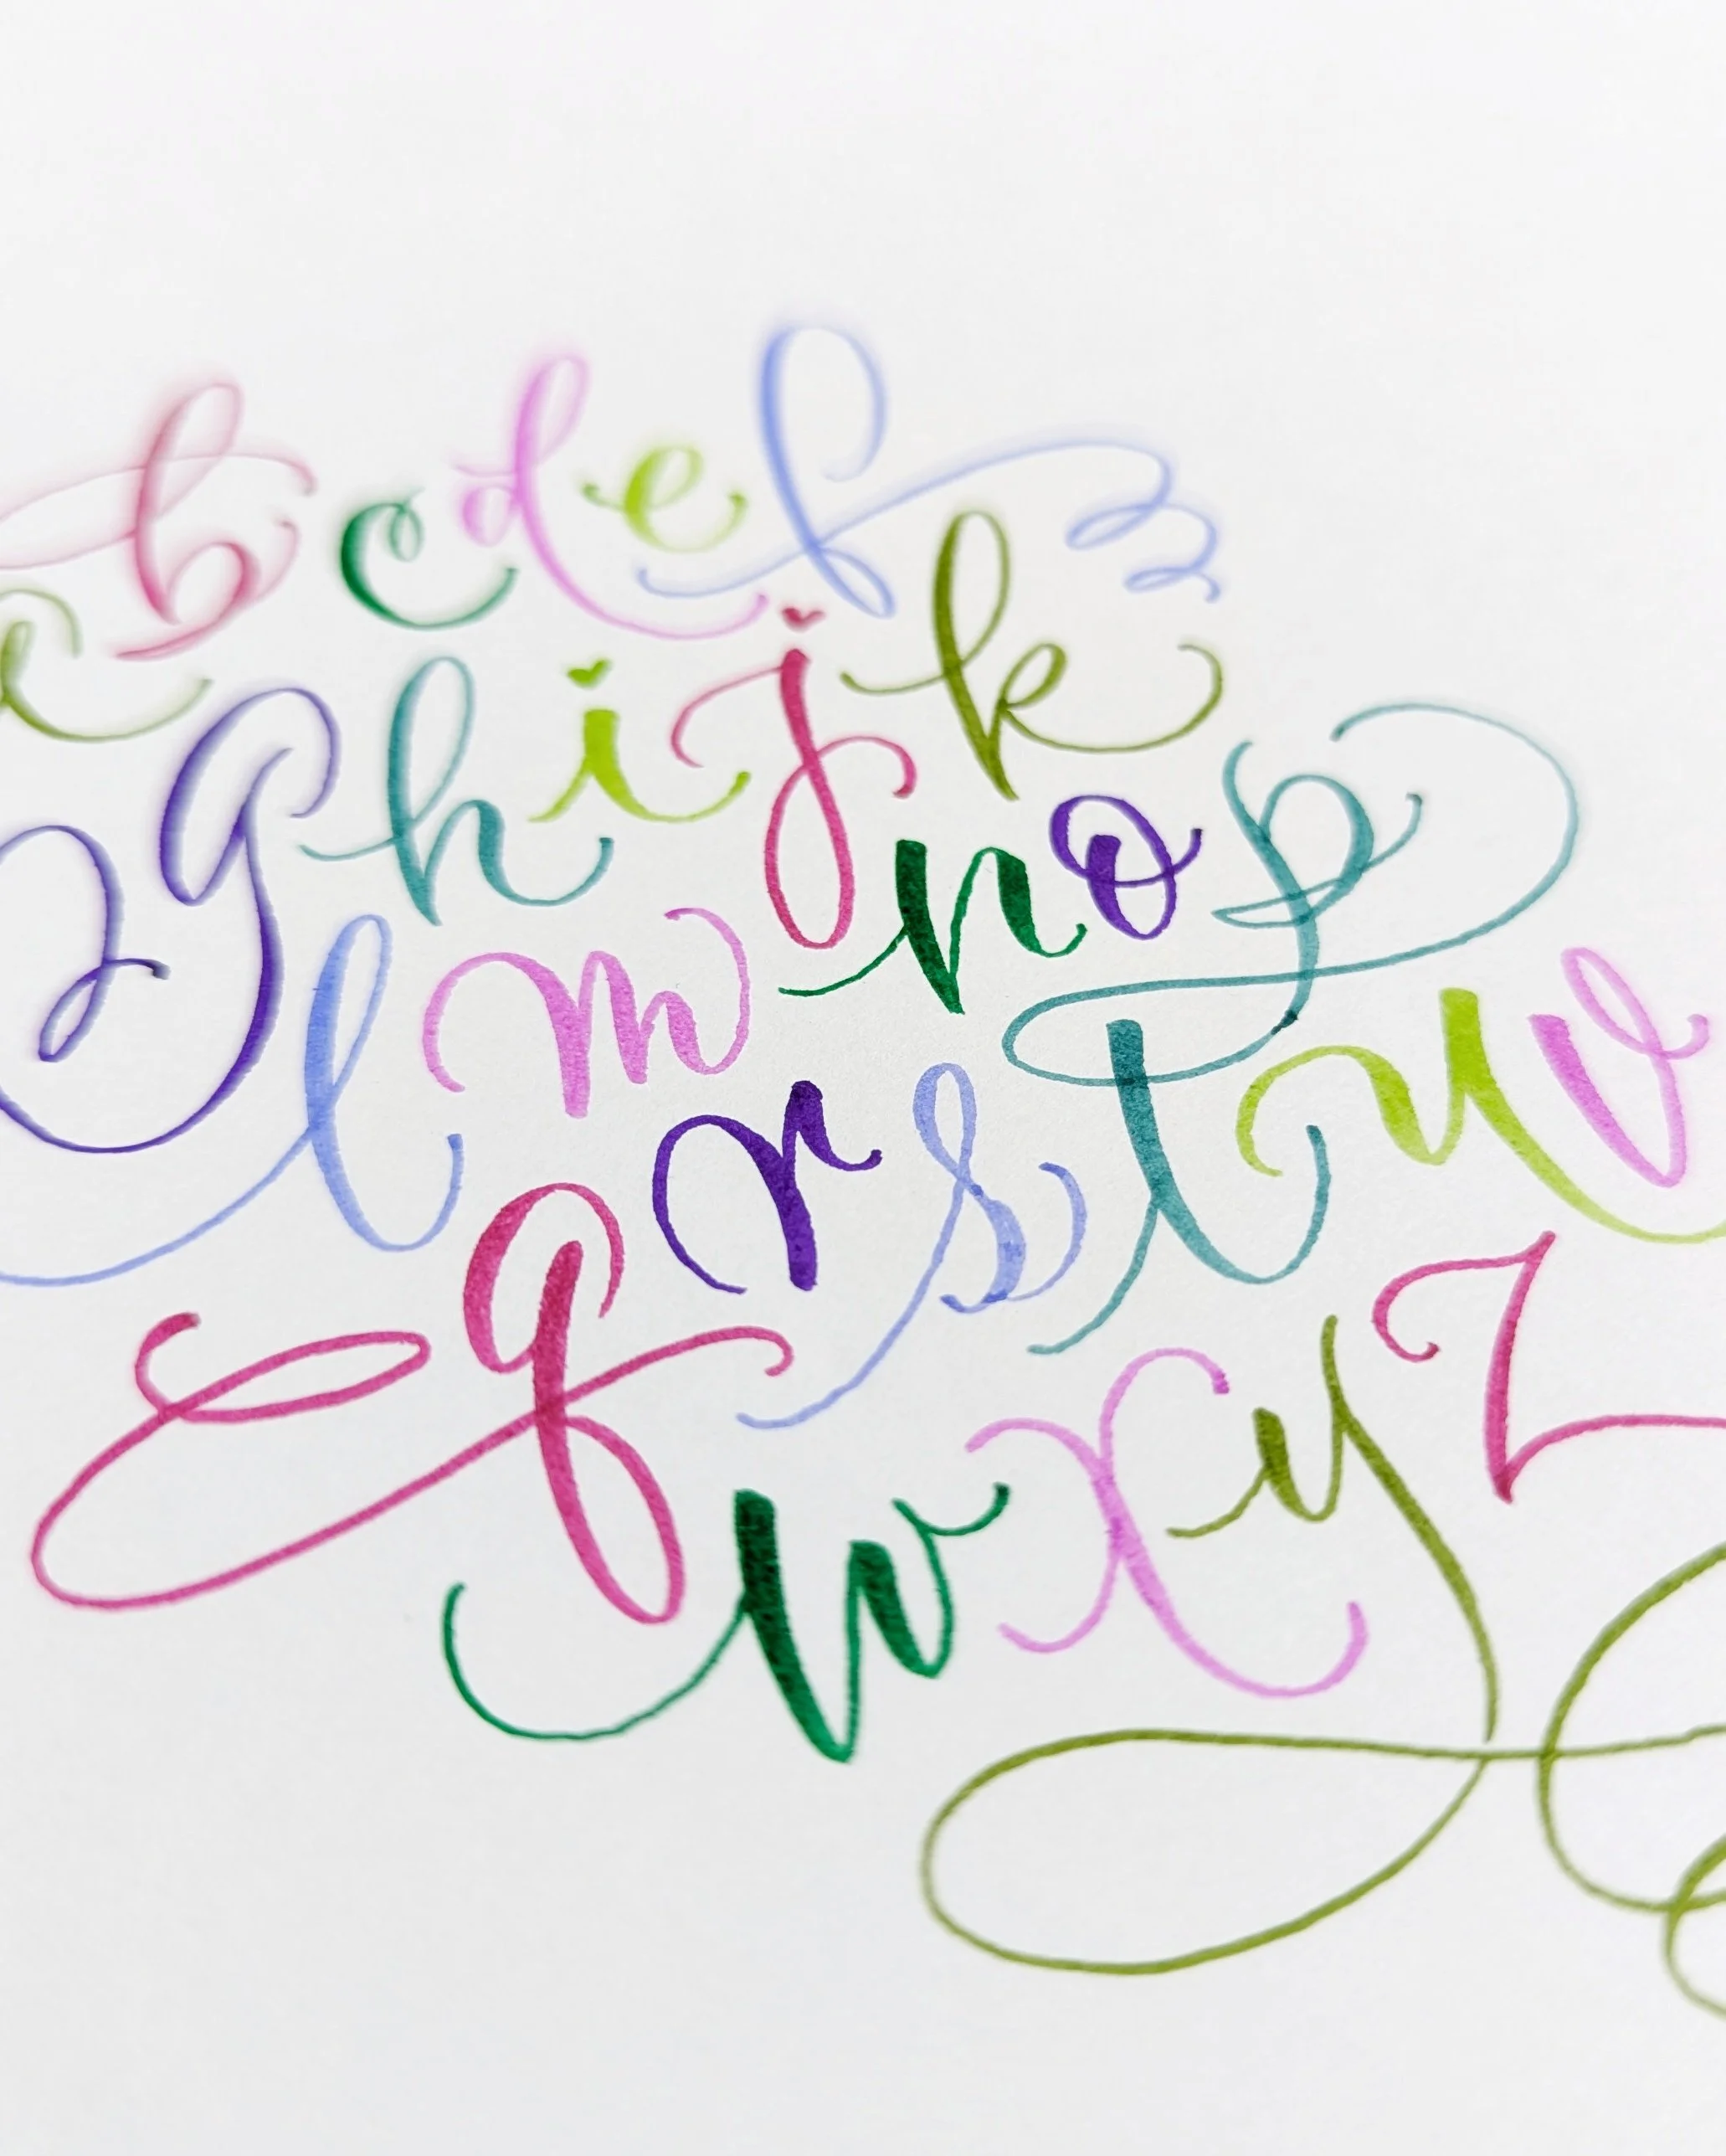 a b c d e f
g h i j k
l m n o p
q r s t u v
w x y z